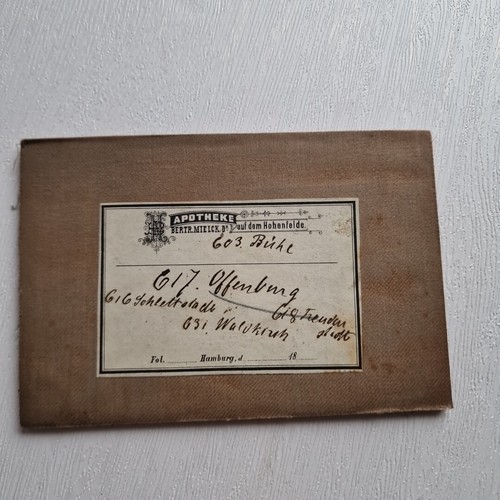 APOTHEKE
BERTR. MIELCK. Dr auf dem Hohenfelde.
603. Bühl
617. Offenburg
616 Schlettstadt 618 Freuden
631. Waldkirch stadt
Fol. Hamburg, d 18